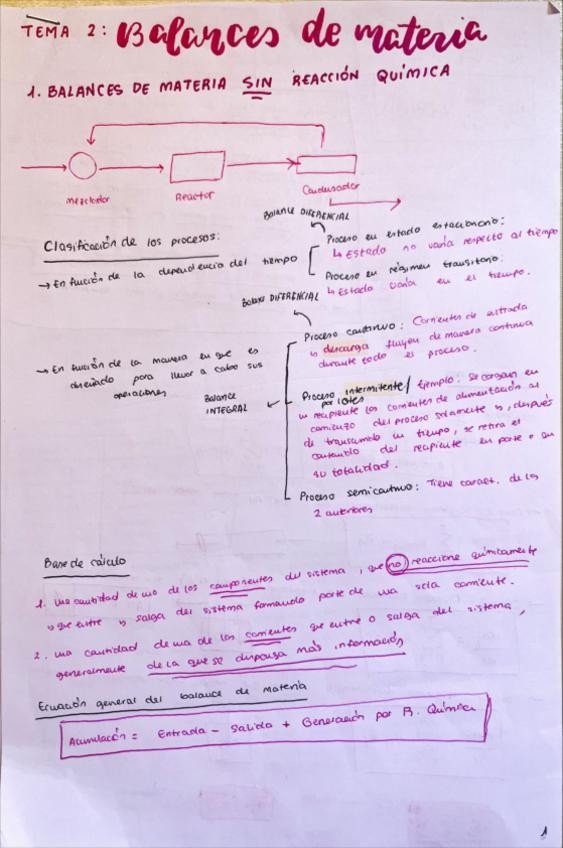 TEMA 2: Balances de materia
1. BALANCES DE MATERIA SIN REACCIÓN QUÍMICA
mezclador
Reactor
Condensador
Clasificación de los procesos:
→ En función de la dependencia del tiempo
Balance DIFERENCIAL
Proceso en estado estacionario:
↳ Estado no varía respecto al tiempo
Proceso en régimen transitorio:
↳ Estado varía en el tiempo.
→ En función de la manera en que es
diseñado para llevar a cabo sus
operaciones
Balance DIFERENCIAL
Proceso continuo: Corrientes de entrada
y descarga fluyen de manera continua
durante todo el proceso.
Balance
INTEGRAL
Proceso intermitente/
por lotes
Ejemplo: Se cargan en
un recipiente las corrientes de alimentación al
comienzo del proceso solamente y, después
de transcurrido un tiempo, se retira el
contenido del recipiente en parte o en
su totalidad.
Proceso semicontinuo: Tiene caract. de los
2 anteriores
Base de cálculo
1. Una cantidad de uno de los componentes del sistema, que no reaccione químicamente
y que entre y salga del sistema formando parte de una sola corriente.
2. Una cantidad de una de las corrientes que entre o salga del sistema,
generalmente de la que se disponga más información
Ecuación general del balance de materia
Acumulación = Entrada - Salida + Generación por R. Química
1